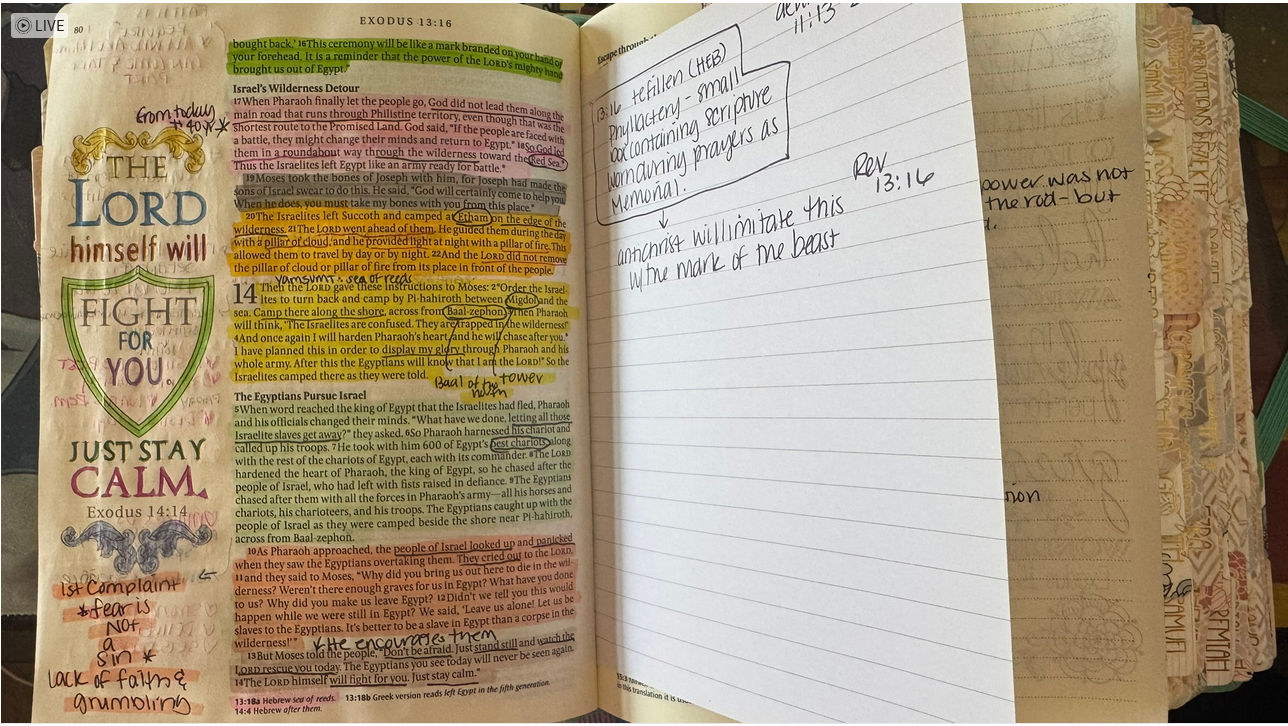 LIVE
80
EXODUS 13:16
bought back.' 16This ceremony will be like a mark branded on your hand or
your forehead. It is a reminder that the power of the LORD's mighty hand
brought us out of Egypt."
Israel's Wilderness Detour
17When Pharaoh finally let the people go, God did not lead them along the
main road that runs through Philistine territory, even though that was the
shortest route to the Promised Land. God said, "If the people are faced with
a battle, they might change their minds and return to Egypt." 18So God led
them in a roundabout way through the wilderness toward the Red Sea.*
Thus the Israelites left Egypt like an army ready for battle.*
19Moses took the bones of Joseph with him, for Joseph had made the
sons of Israel swear to do this. He said, "God will certainly come to help you.
When he does, you must take my bones with you from this place."
20The Israelites left Succoth and camped at Etham on the edge of the
wilderness. 21The LORD went ahead of them. He guided them during the day
with a pillar of cloud, and he provided light at night with a pillar of fire. This
allowed them to travel by day or by night. 22And the LORD did not remove
the pillar of cloud or pillar of fire from its place in front of the people.
yamsuph: sea of reeds
14 Then the LORD gave these instructions to Moses: 2"Order the Israel-
ites to turn back and camp by Pi-hahiroth between Migdol and the
sea. Camp there along the shore, across from Baal-zephon. 3Then Pharaoh
will think, 'The Israelites are confused. They are trapped in the wilderness!'
4And once again I will harden Pharaoh's heart, and he will chase after you.*
I have planned this in order to display my glory through Pharaoh and his
whole army. After this the Egyptians will know that I am the LORD!" So the
Israelites camped there as they were told.
Baal of the north
tower
The Egyptians Pursue Israel
5When word reached the king of Egypt that the Israelites had fled, Pharaoh
and his officials changed their minds. "What have we done, letting all those
Israelite slaves get away?" they asked. 6So Pharaoh harnessed his chariot and
called up his troops. 7He took with him 600 of Egypt's best chariots, along
with the rest of the chariots of Egypt, each with its commander. 8The LORD
hardened the heart of Pharaoh, the king of Egypt, so he chased after the
people of Israel, who had left with fists raised in defiance. 9The Egyptians
chased after them with all the forces in Pharaoh's army—all his horses and
chariots, his charioteers, and his troops. The Egyptians caught up with the
people of Israel as they were camped beside the shore near Pi-hahiroth,
across from Baal-zephon.
10As Pharaoh approached, the people of Israel looked up and panicked
when they saw the Egyptians overtaking them. They cried out to the LORD,
11and they said to Moses, "Why did you bring us out here to die in the wil-
derness? Weren't there enough graves for us in Egypt? What have you done
to us? Why did you make us leave Egypt? 12Didn't we tell you this would
happen while we were still in Egypt? We said, 'Leave us alone! Let us be
slaves to the Egyptians. It's better to be a slave in Egypt than a corpse in the
wilderness!'"
He encourages them
13But Moses told the people, "Don't be afraid. Just stand still and watch the
LORD rescue you today. The Egyptians you see today will never be seen again.
14The LORD himself will fight for you. Just stay calm."
13:18a Hebrew sea of reeds. 13:18b Greek version reads left Egypt in the fifth generation.
14:4 Hebrew after them.
from today
THE
LORD
himself will
FIGHT
FOR
YOU.
JUST STAY
CALM.
Exodus 14:14
1st Complaint
*fear is
NOT
a
sin *
lack of faith &
grumbling
Escape through
11:13
13:16 tefillen (HEB)
Phyllactery - small
box containing scripture
worn during prayers as
Memorial.
Rev
13:16
antichrist will imitate this
w/ the mark of the beast
power was not
the rod - but